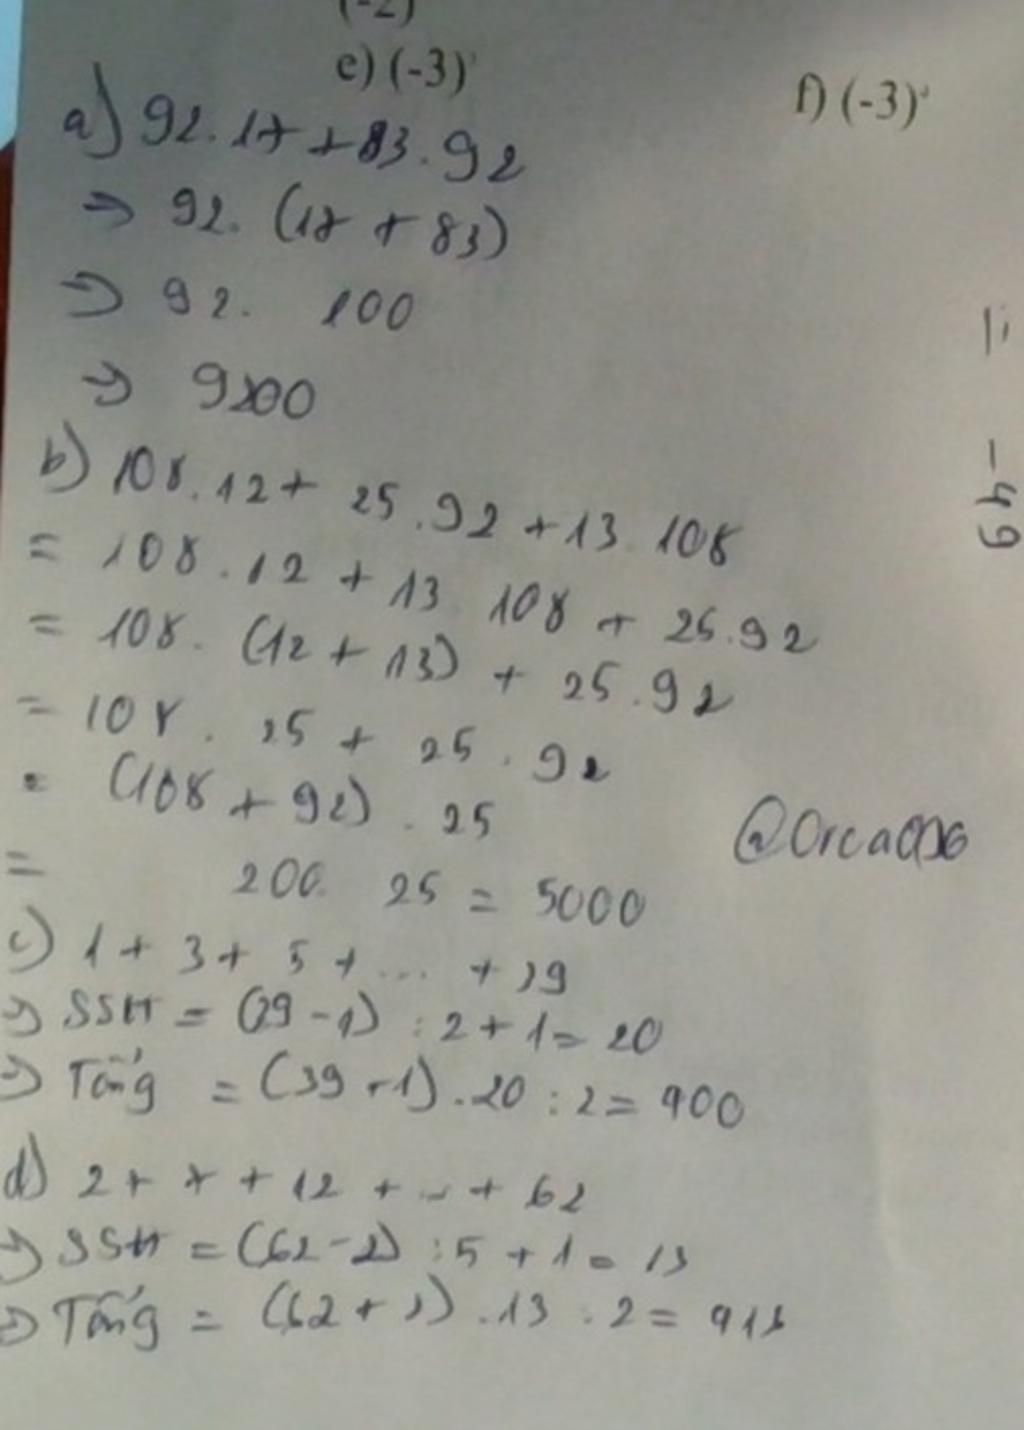 (-2)
e) (-3)
f) (-3)
a) 92.17 + 83.92
=> 92. (17 + 83)
=> 92. 100
=> 9200
b) 108.12 + 25.92 + 13 108
= 108.12 + 13 108 + 25.92
= 108. (12 + 13) + 25.92
= 108. 25 + 25.92
= (108 + 92) . 25
= 200. 25 = 5000
@Orca
c) 1 + 3 + 5 + ... + 39
=> SSH = (39 - 1) : 2 + 1 = 20
=> Tổng = (39 + 1) .20 : 2 = 400
d) 2 + 7 + 12 + ... + 62
=> SSH = (62 - 2) : 5 + 1 = 13
=> Tổng = (62 + 2) .13 : 2 =
-49